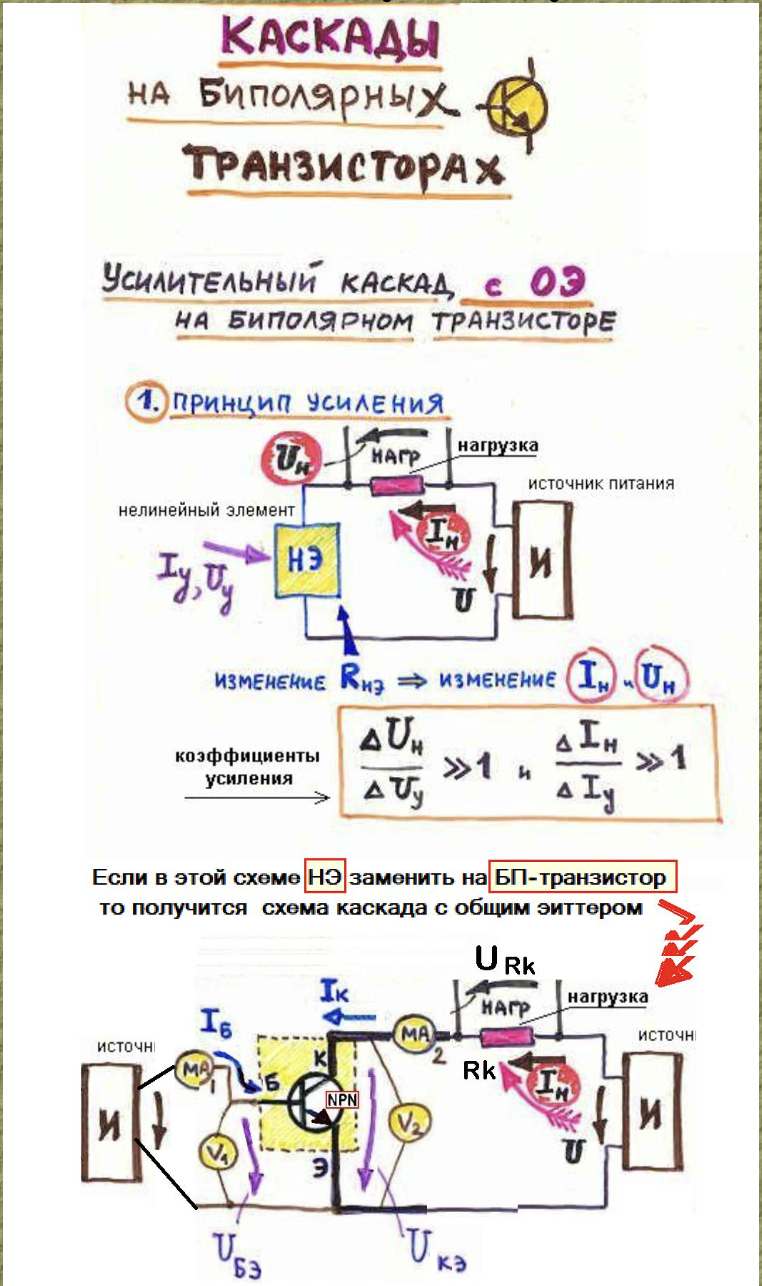 КАСКАДЫ
НА БИПОЛЯРНЫХ
ТРАНЗИСТОРАХ
УСИЛИТЕЛЬНЫЙ КАСКАД с ОЭ
НА БИПОЛЯРНОМ ТРАНЗИСТОРЕ
1. ПРИНЦИП УСИЛЕНИЯ
Uн
НАГР
нагрузка
источник питания
нелинейный элемент
Iн
НЭ
И
Iу, Uу
U
ИЗМЕНЕНИЕ Rнэ ⇒ ИЗМЕНЕНИЕ Iн и Uн
коэффициенты
усиления
ΔUн/ΔUу >>1 и ΔIн/ΔIу >>1
Если в этой схеме НЭ заменить на БП-транзистор
то получится схема каскада с общим эиттером
U Rk
Iк
НАГР
нагрузка
Iб
источн
МА1
К
МА2
источн
Б
Rk
Iн
NPN
И
И
V1
V2
Э
U
Uбэ
Uкэ